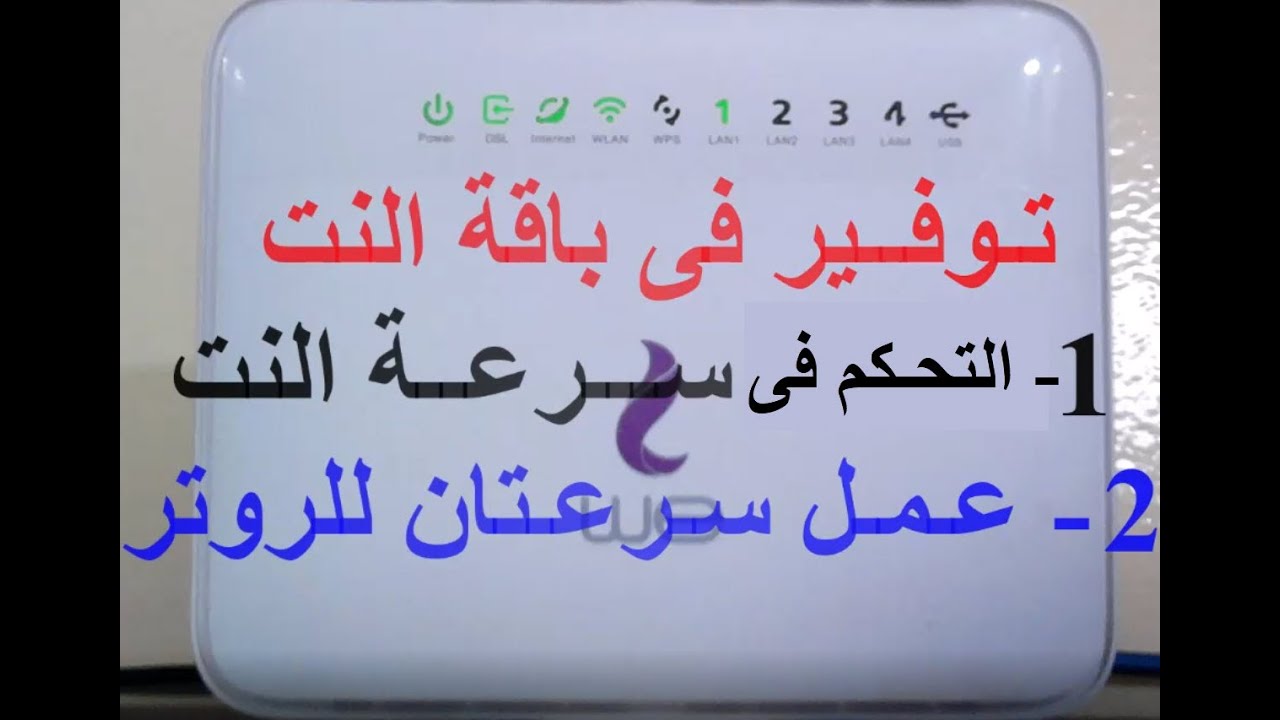 Power DSL Internet WLAN WPS LAN1 LAN2 LAN3 LAN4 USB
1 2 3 4
توفير فى باقة النت
1- التحكم فى سرعة النت
we
2- عمل سرعتان للروتر